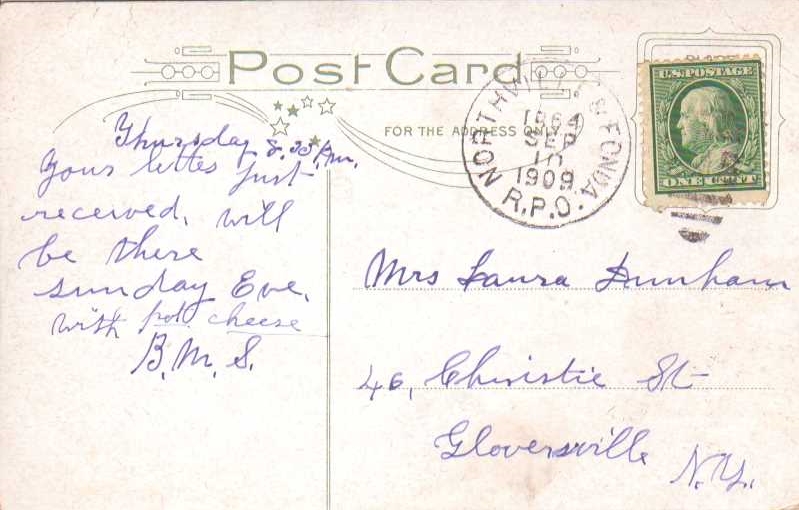 Post Card
FOR THE ADDRESS ONLY
NORTHVILLE & FONDA
SEP
10
1909
R.P.O.
U.S. POSTAGE
ONE CENT
Thursday 8.33 P.m.
Your letter just
received, will
be there
sunday Eve.
with pot cheese
B.M.S.
Mrs Laura Dunham
46, Christie St
Gloversville N.Y.